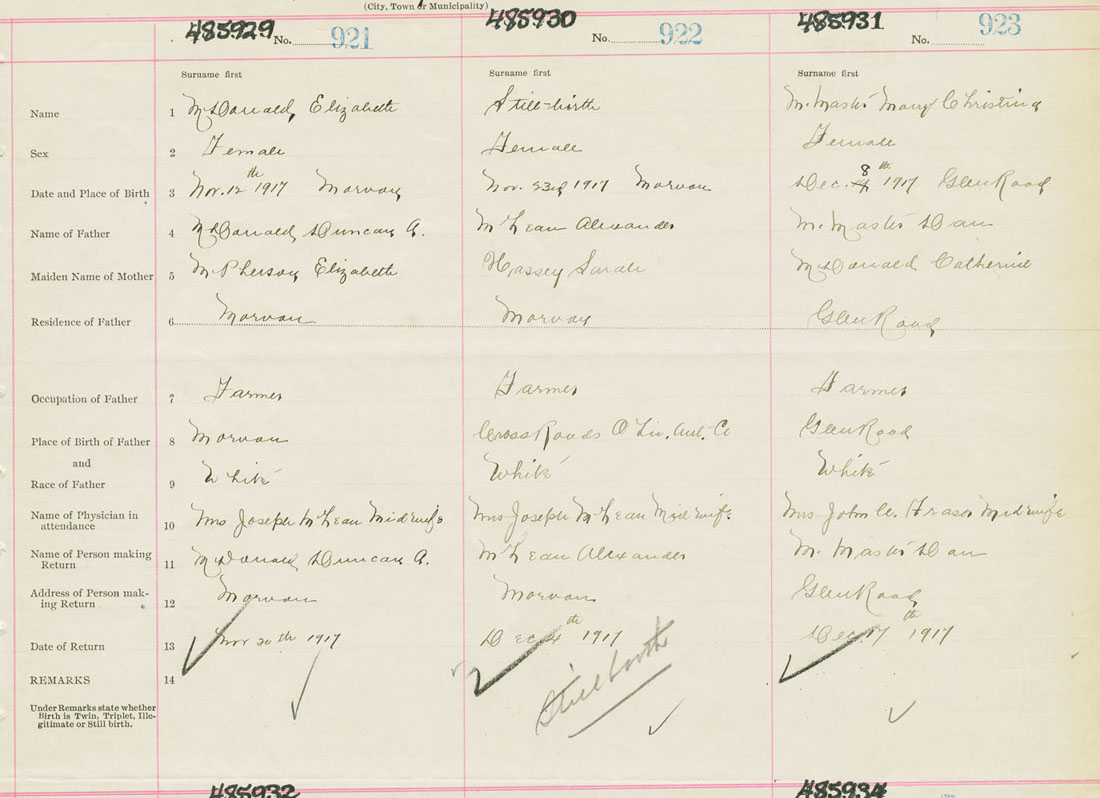 (City, Town or Municipality)
485929 No. 921 485930 No. 922 485931 No. 923
Surname first Surname first Surname first
Name 1 McDonald, Elizabeth Still-birth McMaster Mary Christina
Sex 2 Female Female Female
Date and Place of Birth 3 Nov. 12th 1917 Morvan Nov. 23rd 1917 Morvan Dec. 8th 1917 Glen Road
Name of Father 4 McDonald, Duncan A. McLean Alexander McMaster Dan
Maiden Name of Mother 5 McPherson, Elizabeth Hassey Sarah McDonald Catherine
Residence of Father 6 Morvan Morvan Glen Road
Occupation of Father 7 Farmer Farmer Farmer
Place of Birth of Father 8 Morvan Cross Roads O Hio, Ant. Co Glen Road
and
Race of Father 9 White White White
Name of Physician in
attendance 10 Mrs Joseph McLean Midwife Mrs Joseph McLean Midwife Mrs John A. Fraser Midwife
Name of Person making
Return 11 McDonald Duncan A. McLean Alexander McMaster Dan
Address of Person mak-
ing Return 12 Morvan Morvan Glen Road
Date of Return 13 Nov 20th 1917 Dec 4th 1917 Dec. 17th 1917
REMARKS 14 Stillbirth
Under Remarks state whether
Birth is Twin, Triplet, Ille-
gitimate or Still birth.
485932 485934